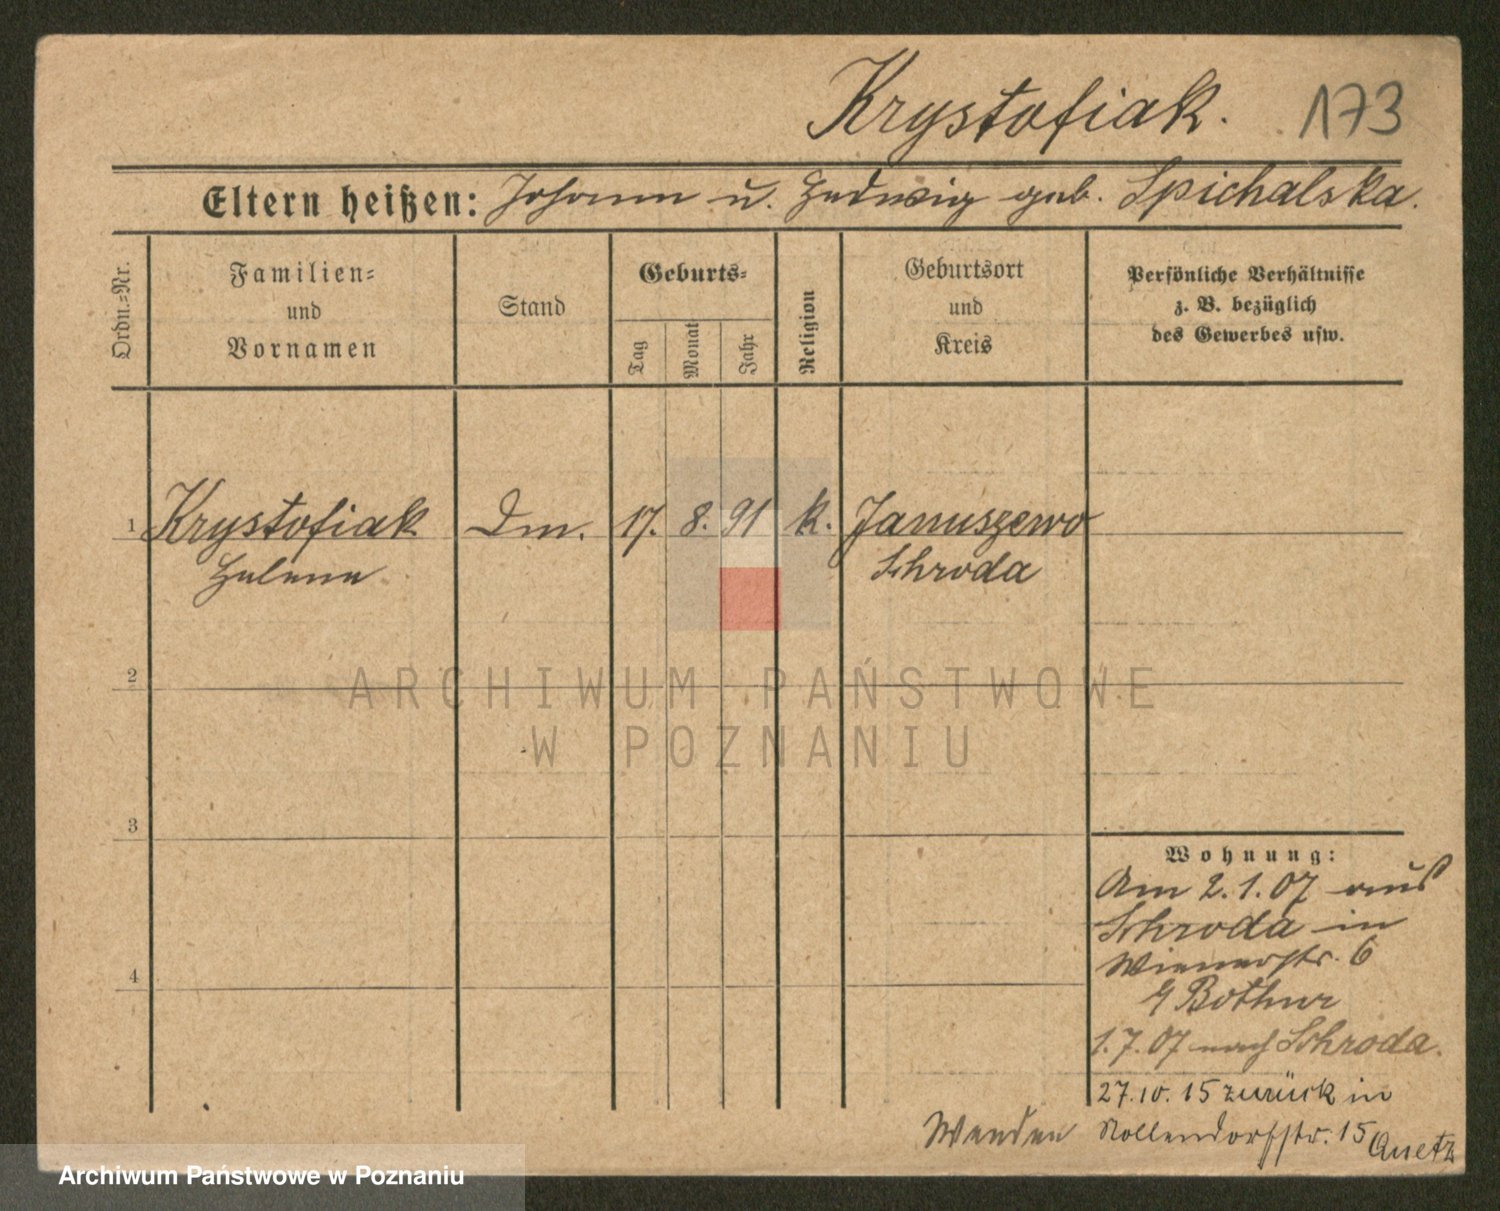 Krystofiak. 173
Eltern heißen: Johann u. Hedwig geb. Spichalska.
Ordn.-Nr.
Familien-
und
Vornamen
Stand
Geburts-
Tag
Monat
Jahr
Religion
Geburtsort
und
Kreis
Persönliche Verhältnisse
z. B. bezüglich
des Gewerbes usw.
1 Krystofiak Dm. 17. 8. 91 k. Januszewo
Helene Schroda
2
ARCHIWUM PAŃSTWOWE
W POZNANIU
3
Wohnung:
Am 2.1.07 aus
Schroda in
Wienerstr. 6
Bothur
4
1.7.07 nach Schroda.
27.10.15 zurück in
Wenden Nollendorfstr. 15 Quetz
Archiwum Państwowe w Poznaniu